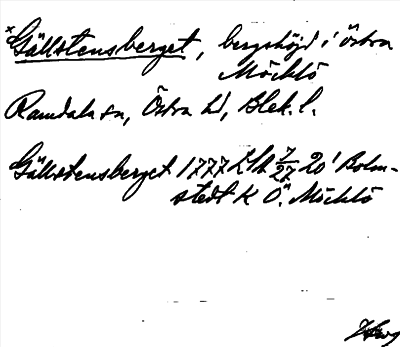 x Gällstensberget, bergshöjd i Östra
Möcklö
Ramdala sn, Östra hd, Blek. l.
Gällstensberget 1777 LSA 7/27 20' Bolm-
stedt K Ö. Möcklö